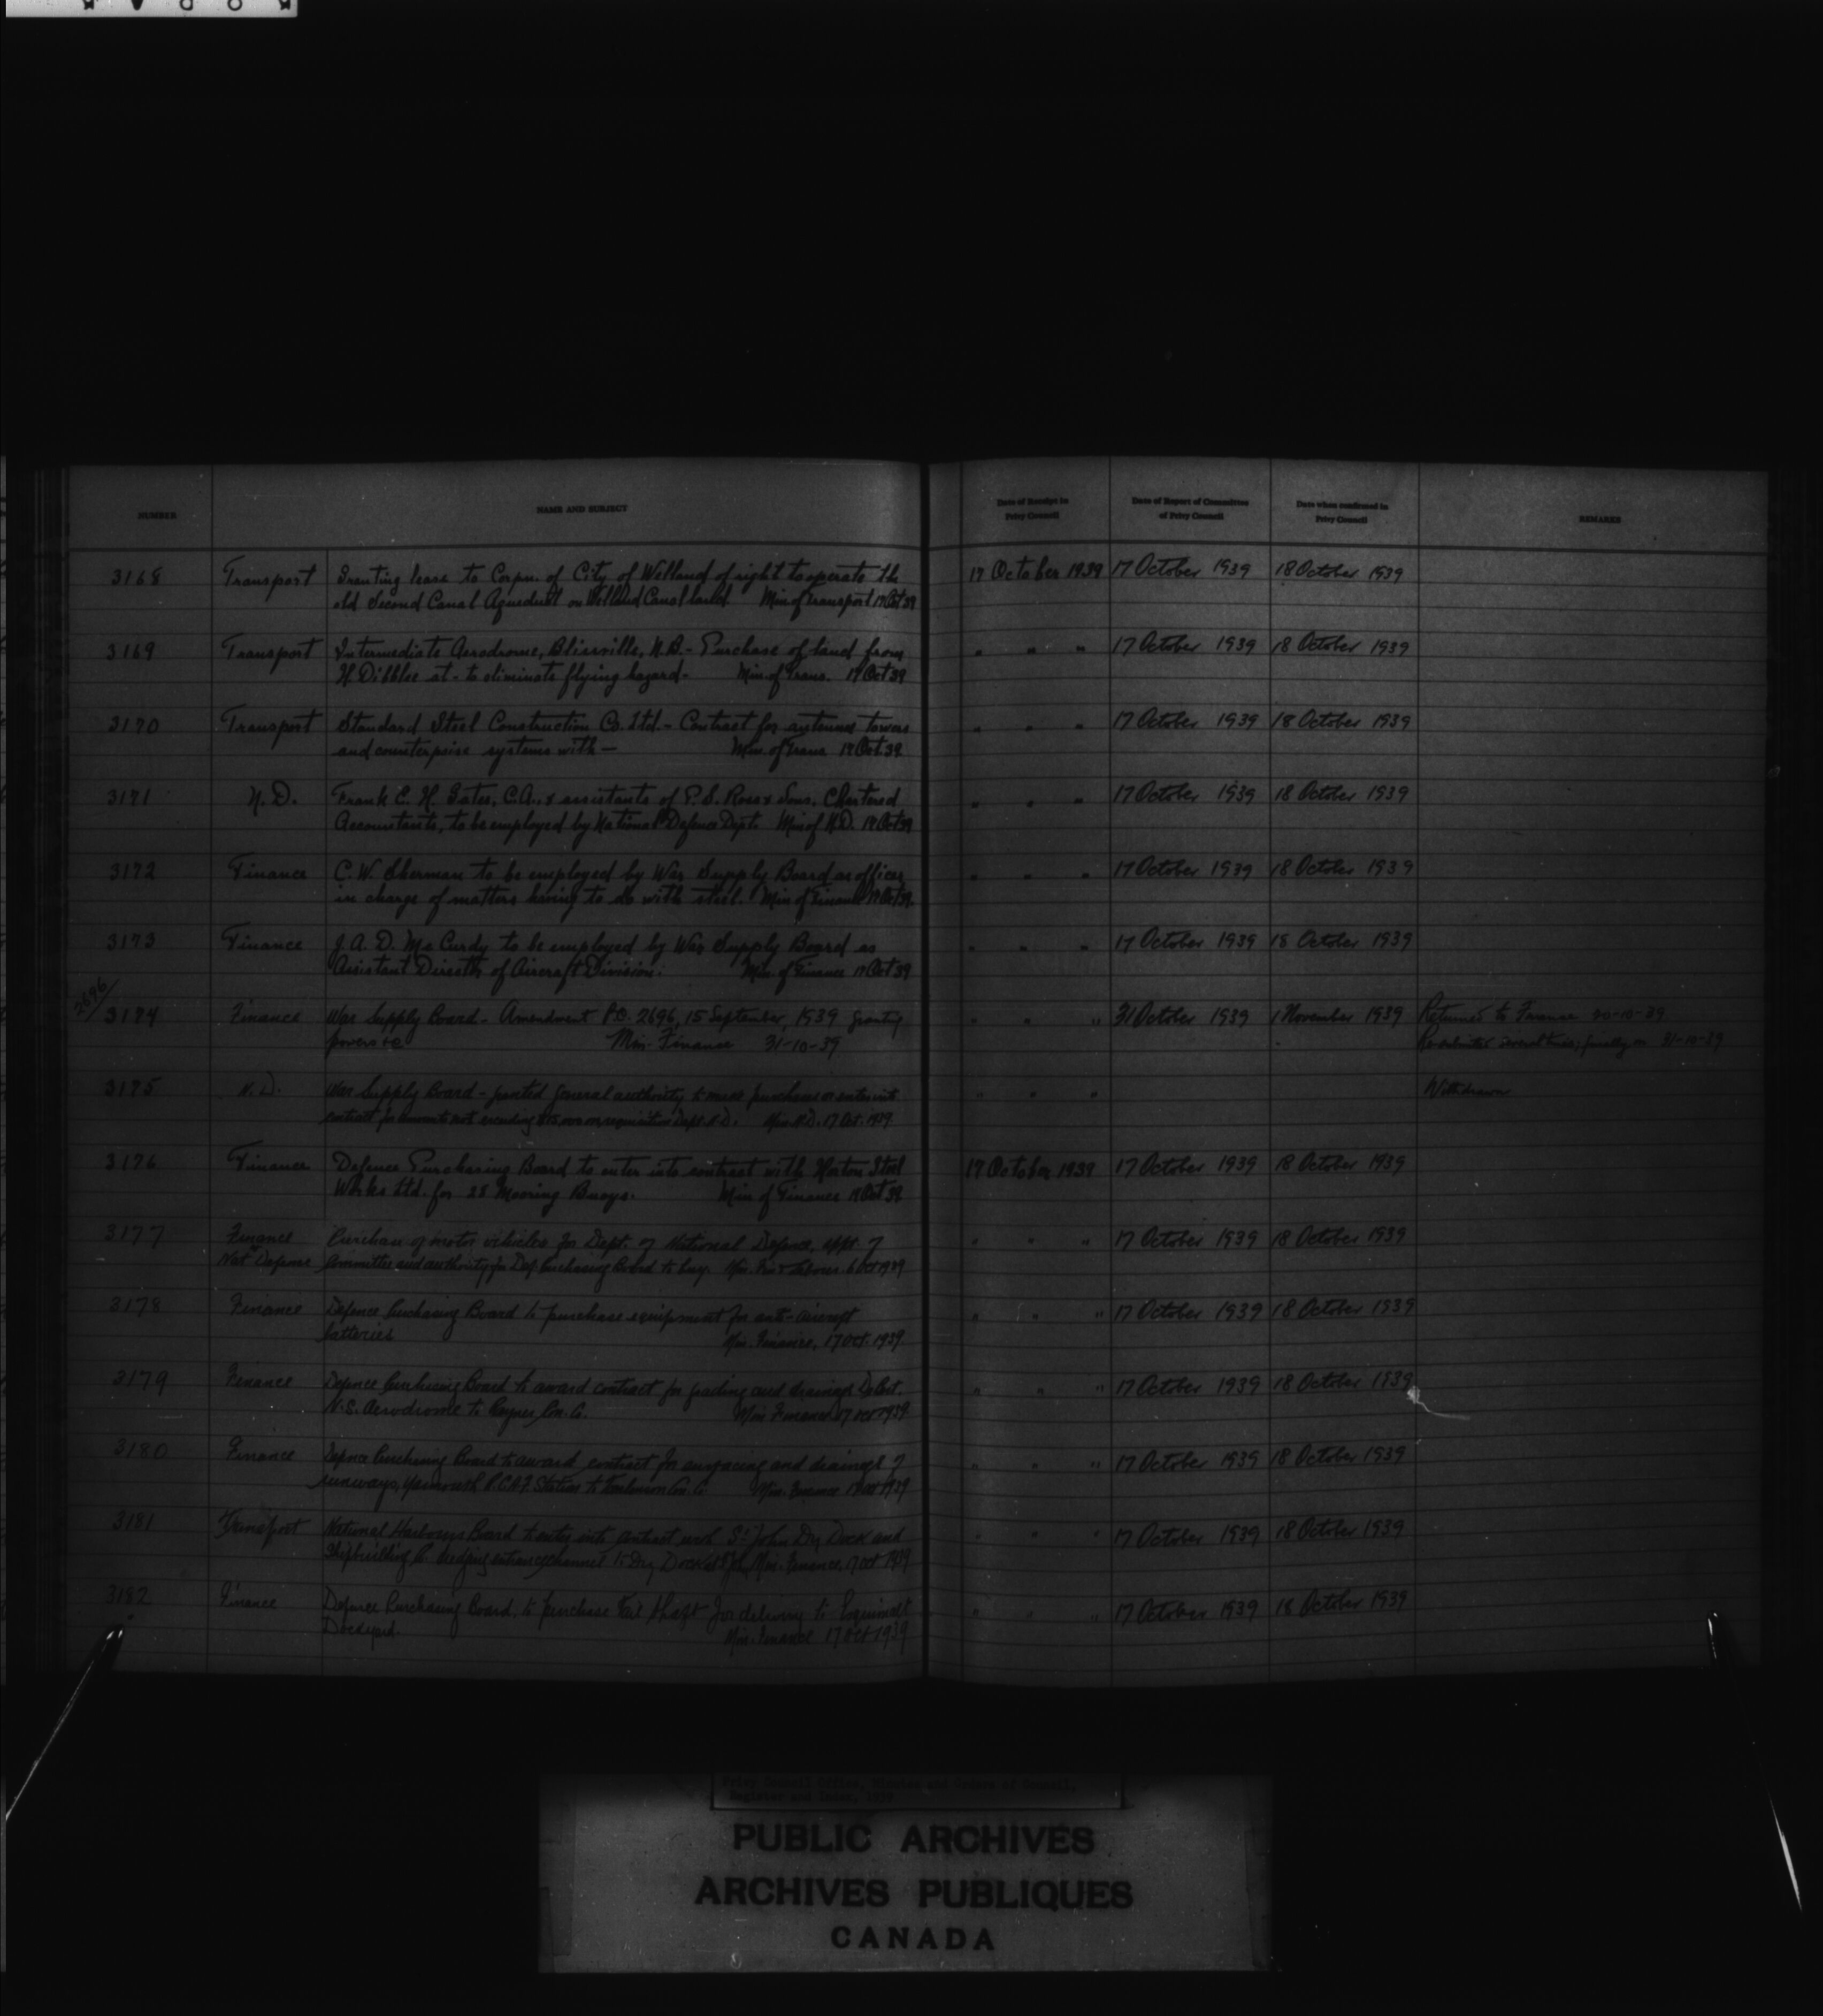 NUMBER NAME AND SUBJECT Date of Receipt in Privy Council Date of Report of Committee of Privy Council Date when confirmed in Privy Council REMARKS
3168 Transport Granting lease to Corpn. of City of Welland of right to operate the 17 October 1939 17 October 1939 18 October 1939
old Second Canal Aqueduct on Welland Canal land. Min of Transport 17 Oct 39
3169 Transport Intermediate Aerodrome, Blissville, N.B. - Purchase of land from " " " 17 October 1939 18 October 1939
H Dibblee at - to eliminate flying hazard - Min. of Trans. 17 Oct 39
3170 Transport Standard Steel Construction Co. Ltd. - Contract for antenna towers " " " 17 October 1939 18 October 1939
and counterpoise systems with — Min. of Trans. 17 Oct. 39
3171 N.D. Frank E. H. Gates, C.A., & assistants of P. S. Ross & Sons, Chartered " " " 17 October 1939 18 October 1939
Accountants, to be employed by National Defence Dept. Min of N.D. 17 Oct 39
3172 Finance C. W. Sherman to be employed by War Supply Board as officer " " " 17 October 1939 18 October 1939
in charge of matters having to do with steel. Min of Finance 17 Oct 39.
3173 Finance J. A. D. McCurdy to be employed by War Supply Board as " " " 17 October 1939 18 October 1939
Assistant Director of Aircraft Division. Min. of Finance 17 Oct 39
2696/
3174 Finance War Supply Board - Amendment P.C. 2696, 15 September, 1939 granting " " " 31 October 1939 1 November 1939 Returned to Finance 20-10-39
powers to Min. Finance 31-10-39 Resubmitted several times; finally on 31-10-39
3175 N.D. War Supply Board - granted general authority to make purchases or enter into " " " Withdrawn
contract for amounts not exceeding $15,000 on requisition Dept. N.D. Min. N.D. 17 Oct. 1939.
3176 Finance Defence Purchasing Board to enter into contract with Horton Steel 17 October 1939 17 October 1939 18 October 1939
Works Ltd. for 28 Mooring Buoys. Min of Finance 17 Oct 39
3177 Finance Purchase of motor vehicles for Dept. of National Defence, appt. of " " " 17 October 1939 18 October 1939
Nat Defence Committee and authority for Def. Purchasing Board to buy. Min. Fin & Labour 6 Oct 1939
3178 Finance Defence Purchasing Board to purchase equipment for anti-aircraft " " " 17 October 1939 18 October 1939
batteries Min. Finance, 17 Oct. 1939.
3179 Finance Defence Purchasing Board to award contract for grading and drainage DeBert, " " " 17 October 1939 18 October 1939
N.S. Aerodrome to Con. Co. Min Finance 17 Oct 1939
3180 Finance Defence Purchasing Board to award contract for surfacing and drainage of " " " 17 October 1939 18 October 1939
runways, Yarmouth R.C.A.F. Station to Tomlinson Con. Co. Min. Finance 17 Oct 1939
3181 Transport National Harbours Board to enter into contract with St. John Dry Dock and " " " 17 October 1939 18 October 1939
Shipbuilding Co. dredging entrance channel to Dry Dock at St. John Min. Finance, 17 Oct 1939
3182 Finance Defence Purchasing Board, to purchase Tail Shaft for delivery to Esquimalt " " " 17 October 1939 18 October 1939
Dockyard. Min. Finance 17 Oct 1939
Privy Council Office, Minutes and Orders of Council,
Register and Index, 1939
PUBLIC ARCHIVES
ARCHIVES PUBLIQUES
CANADA